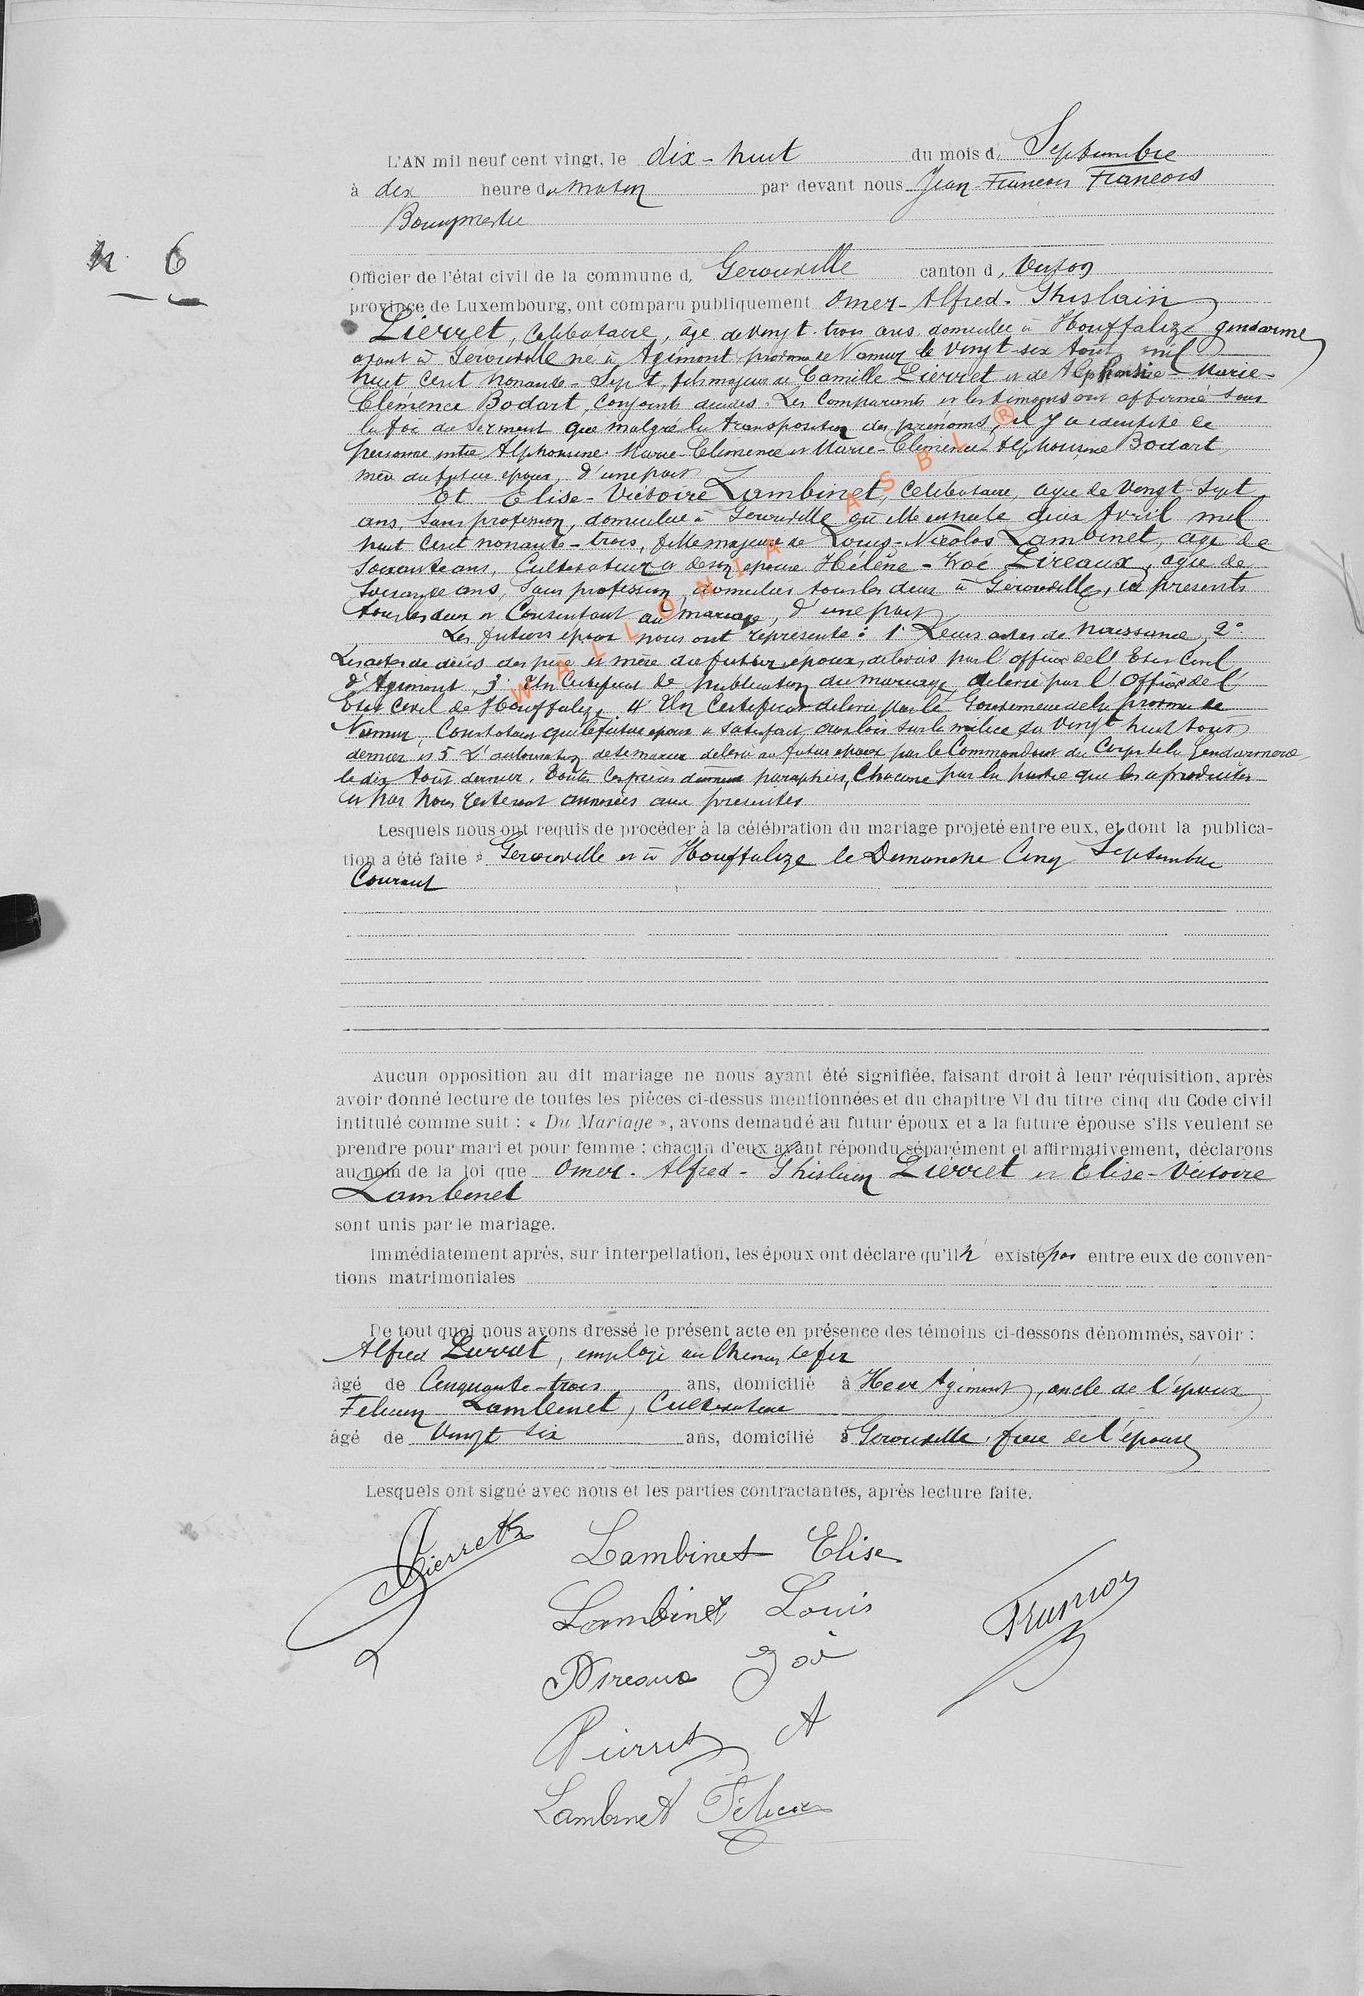 L'AN mil neuf cent vingt, le dix-huit du mois d. Septembre
à dix heure du matin par devant nous Jean-Francois Francois
Bourgmestre
N. 6
Officier de l'état civil de la commune d. Gerouville canton d. Virton
province de Luxembourg, ont comparu publiquement Omer-Alfred-Ghislain
Pierret, Célibataire, âgé de vingt-trois ans domicilié à Houffalize gendarme
ayant à Gerouville né à Agimont province de Namur le vingt-six Aout mil
huit cent nonante-Sept, fils majeur de Camille Pierret et de Alphonsine-Marie-
Clémence Bodart, conjoints décédés. Les Comparants et les témoins ont affirmé sous
la foi du Serment que malgré la transposition des prénoms, il y a identité de
personne entre Alphonsine-Marie-Clémence et Marie-Clémence-Alphonsine Bodart
mère du futur époux, d'une part
Et Elise-Victoire Lambinet, Célibataire, agée de vingt-Sept
ans, Sans profession, domiciliée à Gerouville où elle est née le deux Avril mil
huit cent nonante-trois, fille majeure de Louis-Nicolas Lambinet, age de
Soixante ans, Cultivateur et de son épouse Hélène-Zoé Pireaux, agée de
Soixante ans, Sans profession, domiciliés tous les deux à Gérouville, ici présents
tous les deux et Consentant au mariage, d'une part
Les futurs époux nous ont représenté: 1° Leurs actes de naissance, 2°
Les actes de décès des père et mère du futur époux, délivrés par l'officier de l'Etat Civil
d'Agimont, 3° Un Certificat de publication du mariage, délivré par l'Officier de l'
Etat Civil de Houffalize, 4° Un Certificat délivré par le Gouverneur de la province de
Namur, Constatant que le futur époux a satisfait aux lois sur la milice du vingt-huit Aout
dernier et 5° L'autorisation de se marier délivré au futur époux par le Commandant du Corps de la Gendarmerie
le dix Aout dernier. Toutes les pièces dument paraphées, Chacune par la partie qui les a produites
et par nous resteront annexées aux présentes
Lesquels nous ont requis de procéder à la célébration du mariage projeté entre eux, et dont la publica-
tion a été faite à Gerouville et à Houffalize le Dimanche Cinq Septembre
Courant
Aucun opposition au dit mariage ne nous ayant été signifiée, faisant droit à leur réquisition, après
avoir donné lecture de toutes les piéces ci-dessus mentionnées et du chapitre VI du titre cinq du Code civil
intitulé comme suit : « Du Mariage », avons demandé au futur époux et a la future épouse s'ils veulent se
prendre pour mari et pour femme ; chacun d'eux ayant répondu séparément et affirmativement, déclarons
au nom de la loi que Omer-Alfred-Ghislain Pierret et Elise-Victoire
Lambinet
sont unis par le mariage.
Immédiatement après, sur interpellation, les époux ont déclare qu'il n' existe pas entre eux de conven-
tions matrimoniales
De tout quoi nous avons dressé le présent acte en présence des témoins ci-dessons dénommés, savoir :
Alfred Pierret, employé au Chemin de fer
âgé de Cinquante-trois ans, domicilié à Heer Agimont, oncle de l'époux
Felicien Lambinet, Cultivateur
âgé de Vingt six ans, domicilié à Gerouville, frere de l'épouse
Lesquels ont signé avec nous et les parties contractantes, après lecture faite.
Pierret
Lambinet Elise
Lambinet Louis
Pireaux Zoé
Pierret A
Lambinet Félicien
WALLONIA ASBL ®